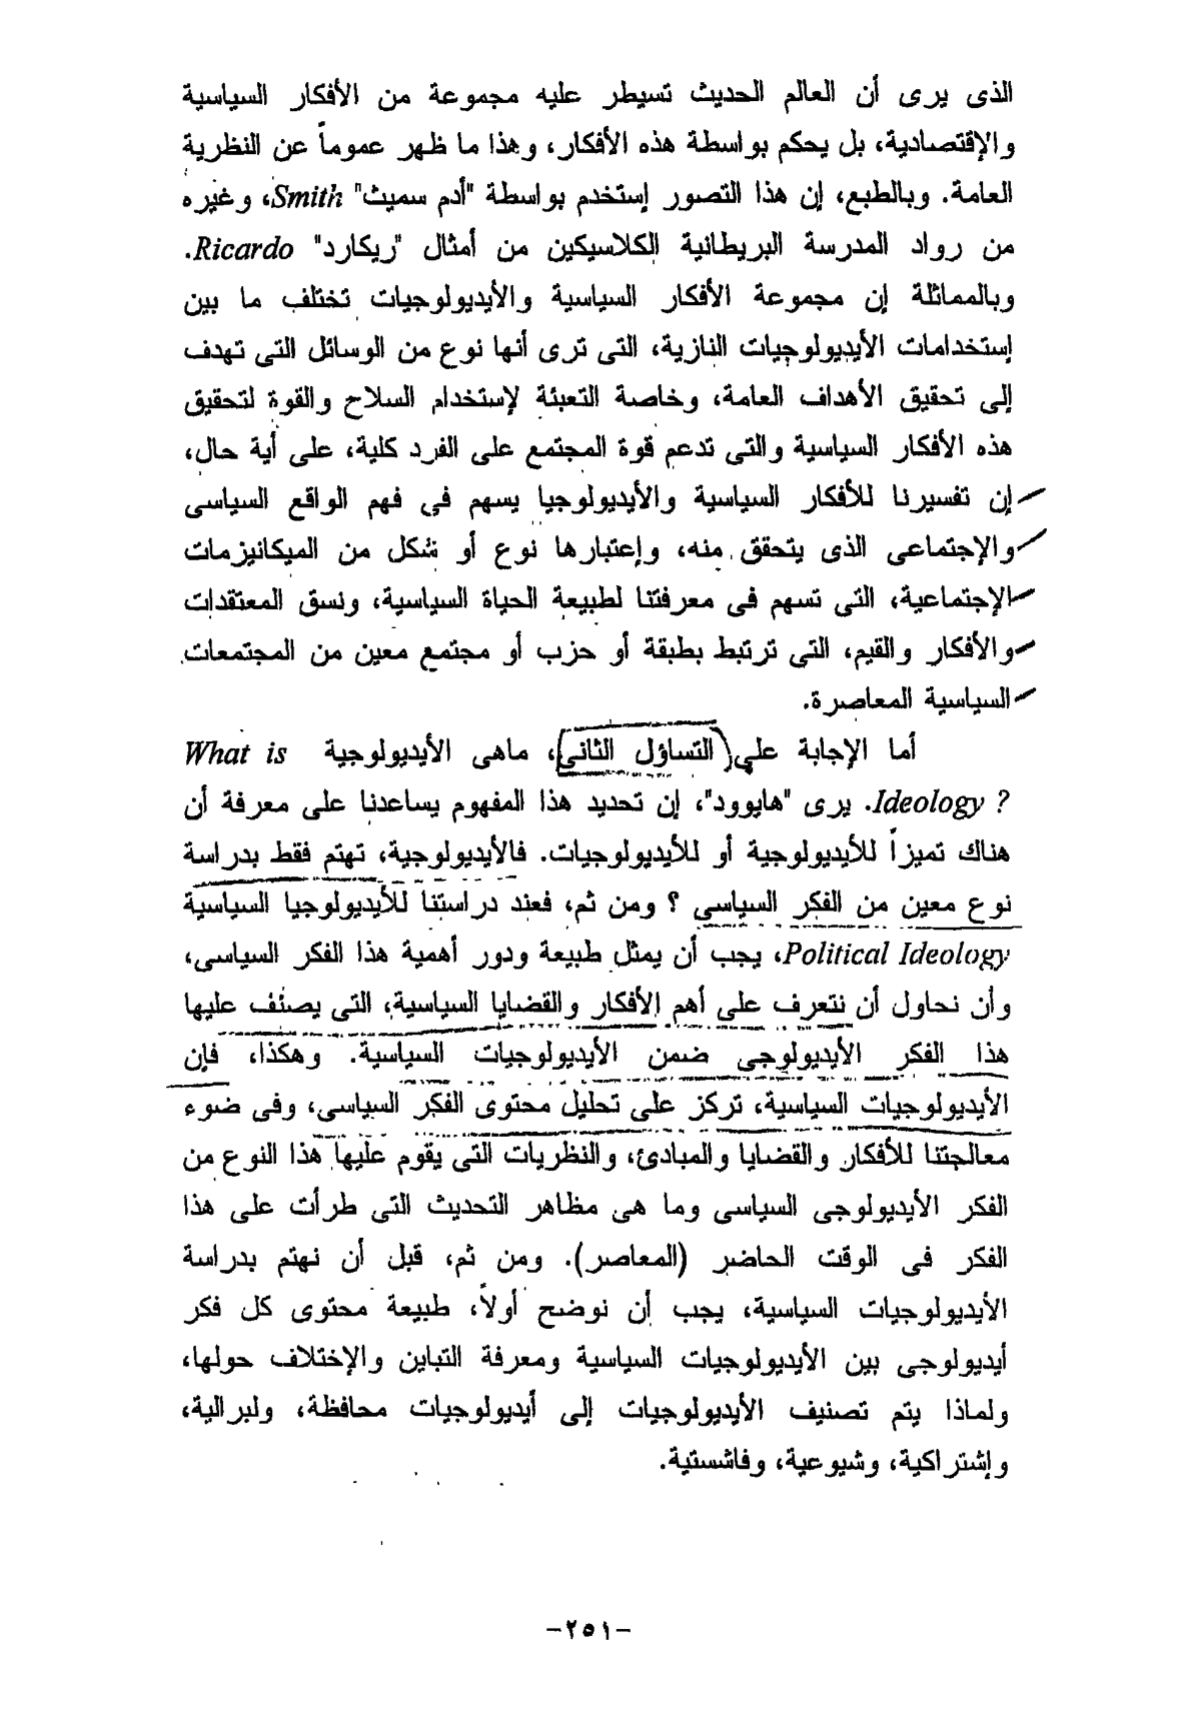 الذى يرى أن العالم الحديث تسيطر عليه مجموعة من الأفكار السياسية
والإقتصادية، بل يحكم بواسطة هذه الأفكار، وهذا ما ظهر عموماً عن النظرية
العامة. وبالطبع، إن هذا التصور إستخدم بواسطة "أدم سميث" Smith، وغيره
من رواد المدرسة البريطانية الكلاسيكين من أمثال "ريكارد" Ricardo.
وبالمماثلة إن مجموعة الأفكار السياسية والأيديولوجيات تختلف ما بين
إستخدامات الأيديولوجيات النازية، التى ترى أنها نوع من الوسائل التى تهدف
إلى تحقيق الأهداف العامة، وخاصة التعبئة لإستخدام السلاح والقوة لتحقيق
هذه الأفكار السياسية والتى تدعم قوة المجتمع على الفرد كلية، على أية حال،
إن تفسيرنا للأفكار السياسية والأيديولوجيا يسهم فى فهم الواقع السياسى
والإجتماعى الذى يتحقق منه، وإعتبارها نوع أو شكل من الميكانيزمات
الإجتماعية، التى تسهم فى معرفتنا لطبيعة الحياة السياسية، ونسق المعتقدات
والأفكار والقيم، التى ترتبط بطبقة أو حزب أو مجتمع معين من المجتمعات
السياسية المعاصرة.
أما الإجابة على التساؤل الثانى، ماهى الأيديولوجية What is
Ideology ?. يرى "هايوود"، إن تحديد هذا المفهوم يساعدنا على معرفة أن
هناك تميزاً للأيديولوجية أو للأيديولوجيات. فالأيديولوجية، تهتم فقط بدراسة
نوع معين من الفكر السياسى ؟ ومن ثم، فعند دراستنا للأيديولوجيا السياسية
Political Ideology، يجب أن يمثل طبيعة ودور أهمية هذا الفكر السياسى،
وأن نحاول أن نتعرف على أهم الأفكار والقضايا السياسية، التى يصنف عليها
هذا الفكر الأيديولوجى ضمن الأيديولوجيات السياسية. وهكذا، فإن
الأيديولوجيات السياسية، تركز على تحليل محتوى الفكر السياسى، وفى ضوء
معالجتنا للأفكار والقضايا والمبادئ، والنظريات التى يقوم عليها هذا النوع من
الفكر الأيديولوجى السياسى وما هى مظاهر التحديث التى طرأت على هذا
الفكر فى الوقت الحاضر (المعاصر). ومن ثم، قبل أن نهتم بدراسة
الأيديولوجيات السياسية، يجب أن نوضح أولاً، طبيعة محتوى كل فكر
أيديولوجى بين الأيديولوجيات السياسية ومعرفة التباين والإختلاف حولها،
ولماذا يتم تصنيف الأيديولوجيات إلى أيديولوجيات محافظة، ولبرالية،
وإشتراكية، وشيوعية، وفاشستية.
-٢٥١-